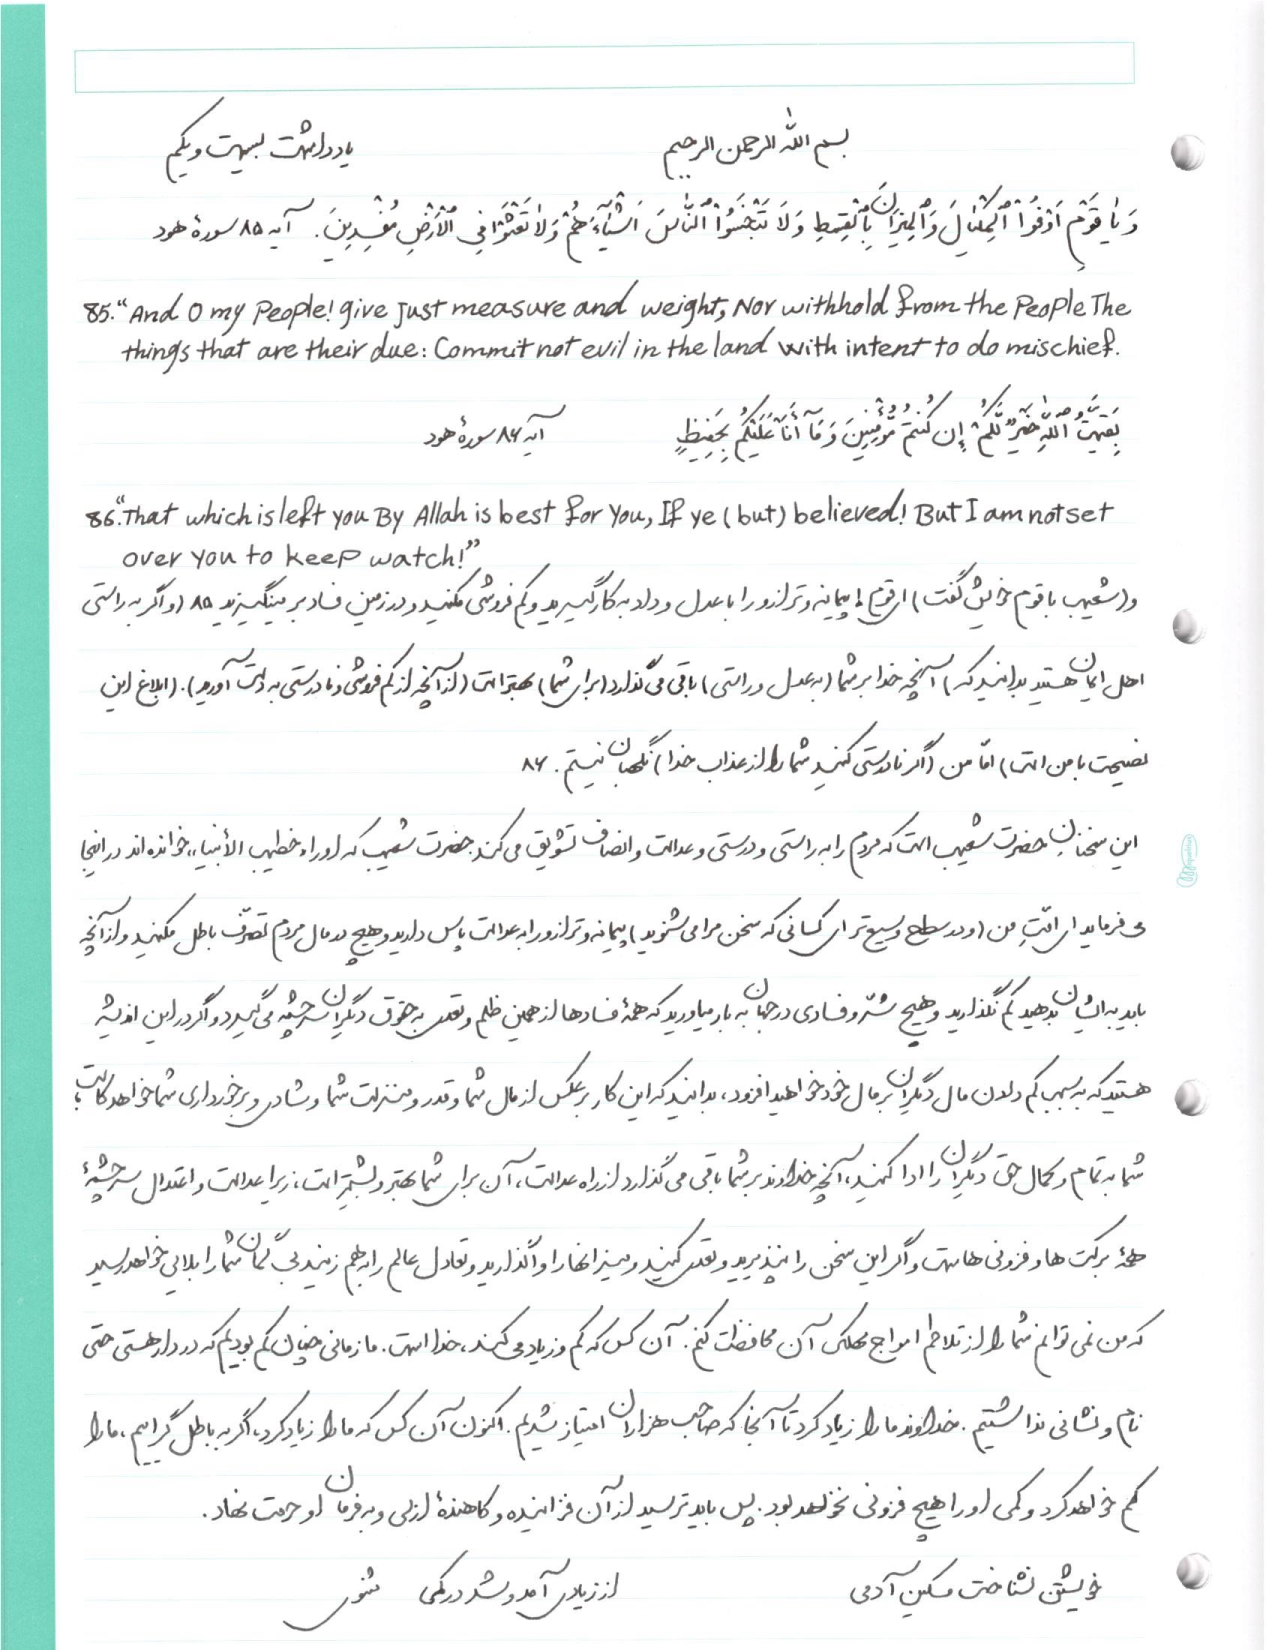 بسم الله الرحمن الرحیم یادداشت بیست و یکم
وَ يٰا قَوْمِ اَوْفُوا۟ ٱلْمِكْيٰالَ وَٱلْمِيزٰانَ بِٱلْقِسْطِ وَ لَا تَبْخَسُوا۟ ٱلنّٰاسَ اَشْيٰآءَهُمْ وَلٰا تَعْثَوْا۟ فِي ٱلْأَرْضِ مُفْسِدِينَ. آیه ۸۵ سورهٔ هود
85. “And O my People! give just measure and weight, Nor withhold from the People The
things that are their due: Commit not evil in the land with intent to do mischief.
بَقِيَّتُ ٱللّٰهِ خَيْرٌ لَّكُمْ إِن كُنتُم مُّؤْمِنِينَ وَ مَآ أَنَا۠ عَلَيْكُم بِحَفِيظٍ آیه ۸۶ سورهٔ هود
86. “That which is left you By Allah is best for You, If ye (but) believed! But I am not set
over you to keep watch!”
و (شعیب با قوم خویش گفت) ای قوم! پیمانه و ترازو را با عدل و داد به کار گیرید و کم فروشی مکنید و در زمین فساد بر مینگیزید ۸۵ (و اگر به راستی
اهل ایمان هستید بدانید که) آنچه خدا بر شما (به عدل و راستی) باقی می گذارد (برای شما) بهتر است (از آنچه از کم فروشی و نادرستی به دست آورید). (ابلاغ این
نصیحت با من است) امّا من (اگر نادرستی کنید شما را از عذاب خدا) نگهبان نیستم. ۸۶
این سخنانِ حضرت شعیب است که مردم را به راستی و درستی و عدالت و انصاف تشویق می کند. حضرت شعیب که او را «خطیب الأنبیاء» خوانده اند در اینجا
می فرماید ای امّتِ من (و در سطح وسیع تر ای کسانی که سخن مرا می شنوید) پیمانه و ترازو را به عدالت پاس دارید و هیچ در مال مردم تصرّف باطل مکنید و از آنچه
باید به ایشان بدهید کم نگذارید و هیچ شرّ و فسادی در جهان به بار میاورید که همهٔ فسادها از همین ظلم و تعدی به حقوق دیگران سرچشمه می گیرد و اگر در این اندیشه
هستید که به سبب کم دادن مال دیگران بر مال خود خواهید افزود، بدانید که این کار برعکس از مال شما و قدر و منزلت شما و شادی و برخورداری شما خواهد کاست؛
شما به تمام و کمال حق دیگران را ادا کنید، آنچه خداوند بر شما باقی می گذارد از راه عدالت، آن برای شما بهتر و بیشتر است، زیرا عدالت و اعتدال سرچشمهٔ
همهٔ برکت ها و فزونی هاست و اگر این سخن را نپذیرید و تعدی کنید و میزانها را واگذارید و تعادل عالم را به هم زنید بی گمان شما را بلایی خواهد رسید
که من نمی توانم شما را از تلاطم امواج مهلک آن محافظت کنم. آن کس که کم و زیاد می کند، خداست. ما زمانی چنان کم بودیم که در دار هستی حتی
نام و نشانی نداشتیم. خداوند ما را زیاد کرد تا آنجا که صاحب هزاران امتیاز شدیم. اکنون آن کس که ما را زیاد کرد، اگر به باطل گراییم، ما را
کم خواهد کرد و کمی او را هیچ فزونی نخواهد بود. پس باید ترسید از آن فزاینده و کاهندهٔ ازلی و به فرمان او حرمت نهاد.
خویشتن نشناخت مسکین آدمی از زیادی آمد و شد در کمی مثنوی